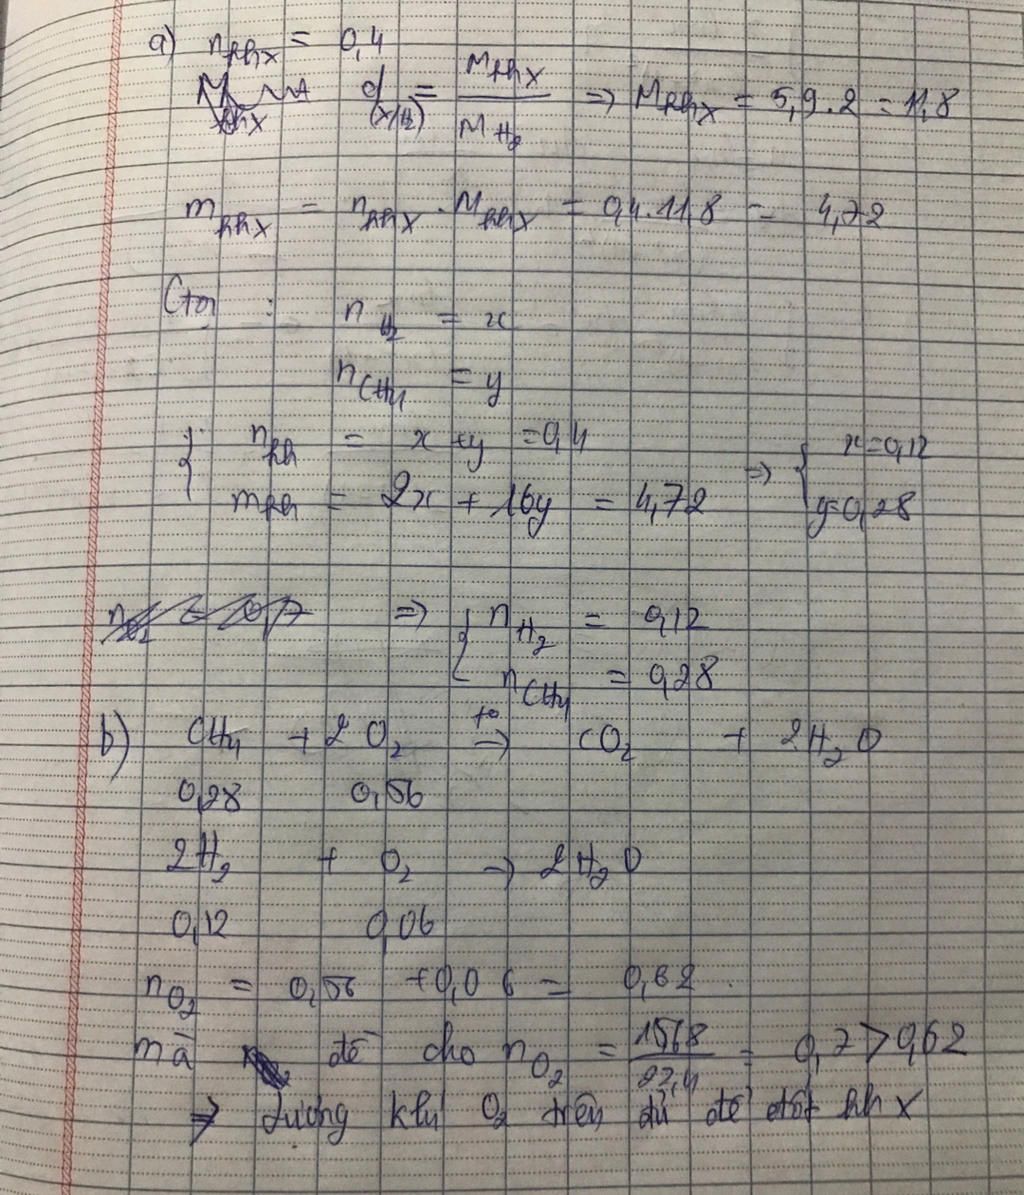 a) n hhX = 0,4
d (X/H2) = M hhX / M H2 => M hhX = 5,9.2 = 11,8
m hhX = n hhX . M hhX = 0,4.11,8 = 4,72
Gọi : n H2 = x
n CH4 = y
{ n hh = x + y = 0,4 => { x = 0,12
m hh = 2x + 16y = 4,72 y = 0,28
=> { n H2 = 0,12
n CH4 = 0,28
b) CH4 + 2O2 t° → CO2 + 2H2O
0,28 0,56
2H2 + O2 → 2H2O
0,12 0,06
n O2 = 0,56 + 0,06 = 0,62
mà đề cho n O2 = 15,68 / 22,4 = 0,7 > 0,62
=> lượng khí O2 trên đủ để đốt hh X